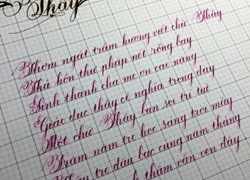 Thầy
Thơm ngát trầm hương viết chữ Thầy
Thả hồn thư pháp nét rồng bay
Sinh thành cha mẹ ơn cao nặng
Giáo dục thầy cô nghĩa trọng dày
Một chữ Thầy ban soi trí tuệ
Trăm năm trò học sáng trời mây
dẫu bạc cùng năm tháng
thắm vẹn đầy